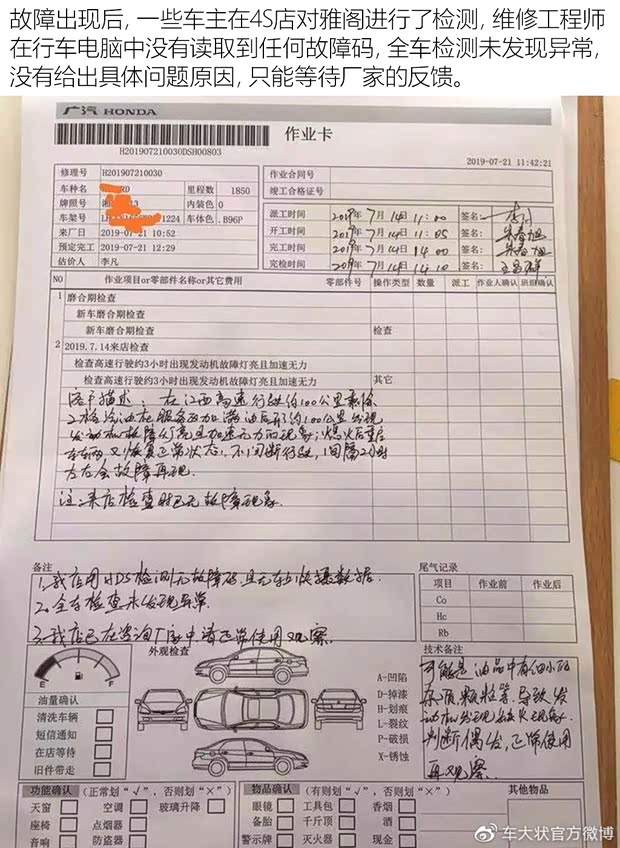 故障出现后, 一些车主在4S店对雅阁进行了检测, 维修工程师
在行车电脑中没有读取到任何故障码, 全车检测未发现异常,
没有给出具体问题原因, 只能等待厂家的反馈。
广汽 HONDA
作业卡
H201907210030DSH00803
2019-07-21 11:42:21
修理号 H201907210030
作业合同号
车种名 RD 里程数 1850
竣工合格证号
牌照号 内装色 0
车架号 1224 车体色 .B96P
派工时间 2019年7月14日 11:00 签名:
来厂日 2019-07-21 10:52
开工时间 2019年7月14日 11:05 签名:
预定完工 2019-07-21 12:29
完工时间 2019年7月14日 14:00 签名:
估价人 李凡
完检时间 2019年7月14日 14:10 签名:
NO 作业项目or零部件名称or其它费用 零部件号 操作类型 数量 派工 作业人确认 班组确认
1 磨合期检查
新车磨合期检查
新车磨合期检查 检查
2 2019.7.14来店检查
检查高速行驶约3小时出现发动机故障灯亮且加速无力
检查高速行驶约3小时出现发动机故障灯亮且加速无力 其它
客户描述: 在江西高速行驶约100公里
汽油在服务区加满油后行约100公里出现
发动机故障灯亮且加速无力的现象; 熄火后重启
又恢复正常状态, 不间断行驶, 间隔2小时
左右会故障再现.
注: 来店检查时已无故障现象.
备注
1. 我店用HDS检测无故障码, 且无车上快摄数据.
2. 全车检查未发现异常.
3. 我店已在咨询厂家中, 请正常使用观察.
尾气记录
项目 作业前 作业后
Co
Hc
Rb
外观检查
E F
油量确认
清洗车辆
短信通知
在店等待
旧件带走
A-凹陷
D-掉漆
H-划痕
L-裂纹
P-破损
X-锈蚀
技术备注
可能是油品中有细小的
杂质颗粒等, 导致发
动机
判断偶发, 正常使用
再观察.
功能确认 (正常划“√”, 否则划“×”)
天窗 空调 玻璃升降
座椅 点烟器
音响 防盗器
物品确认 (有则划“√”, 否则划“×”)
眼镜 工具包 香烟
备胎 千斤顶 酒
警示牌 灭火器 现金
其他物品
车大状官方微博